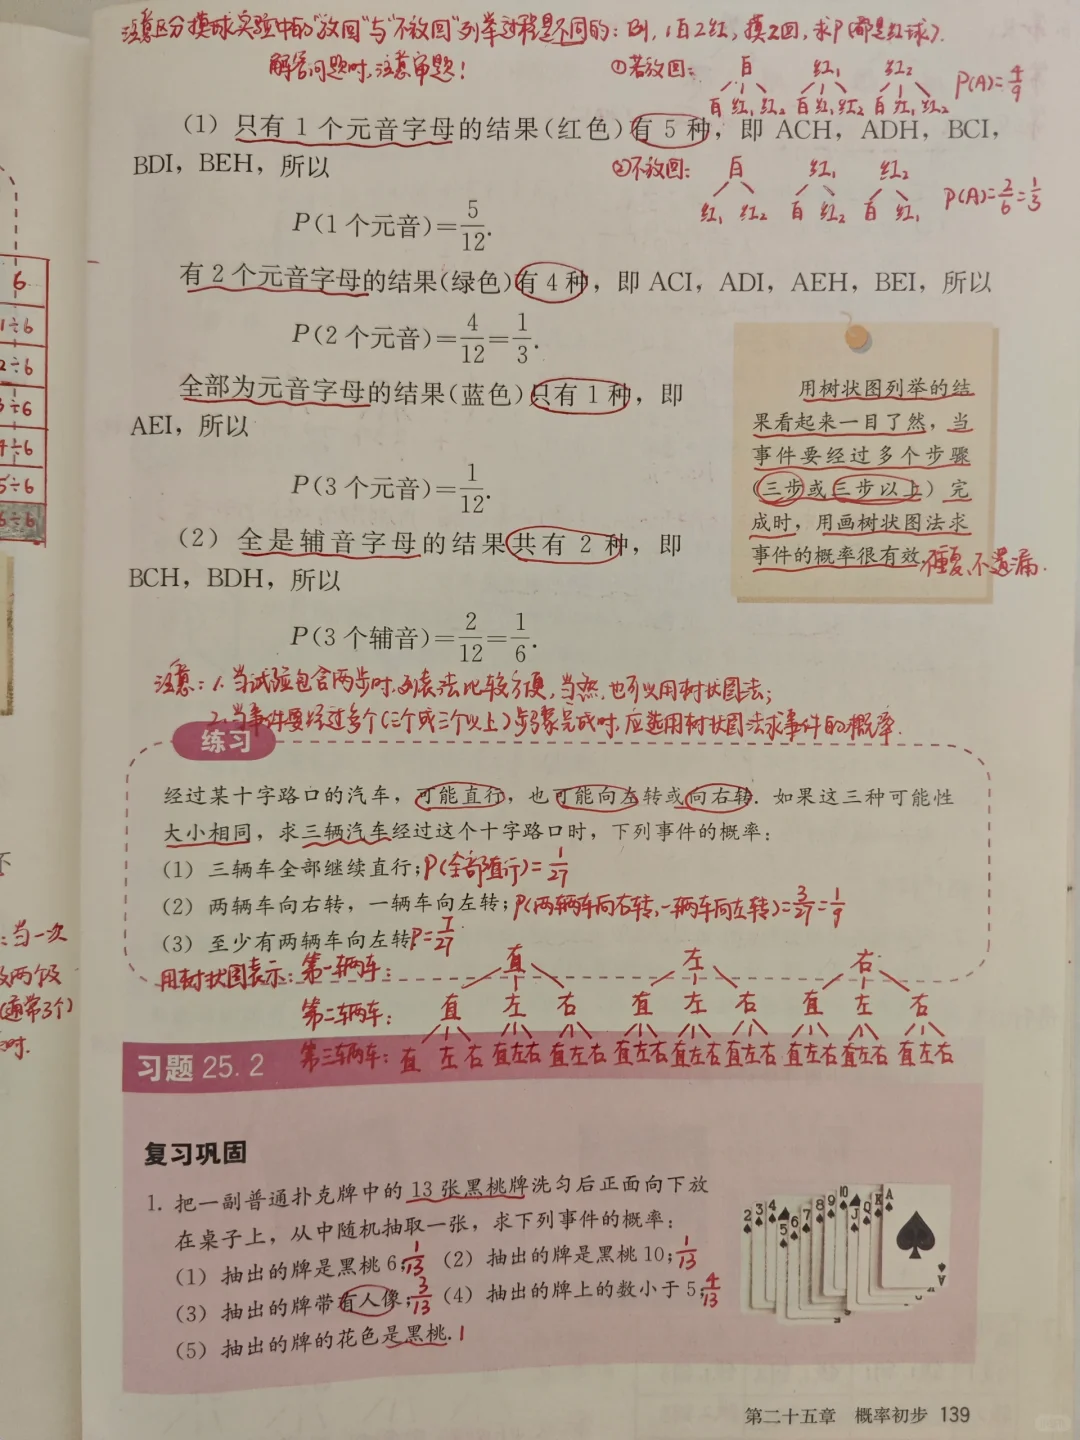 注意区分摸球实验中的“放回”与“不放回”列举过程是不同的：例，1白2红，摸2回，求P(都是红球)．
解答问题时，注意审题！
①若放回：
白 红₁ 红₂
白 红₁ 红₂ 白 红₁ 红₂ 白 红₁ 红₂
P(A)=4/9
(1) 只有 1 个元音字母的结果(红色)有 5 种，即 ACH，ADH，BCI，
BDI，BEH，所以
②不放回：
白 红₁ 红₂
红₁ 红₂ 白 红₂ 白 红₁
P(A)=2/6=1/3
P(1 个元音)=5/12.
有 2 个元音字母的结果(绿色)有 4 种，即 ACI，ADI，AEH，BEI，所以
P(2 个元音)=4/12=1/3.
全部为元音字母的结果(蓝色)只有 1 种，即
AEI，所以
P(3 个元音)=1/12.
(2) 全是辅音字母的结果共有 2 种，即
BCH，BDH，所以
P(3 个辅音)=2/12=1/6.
用树状图列举的结
果看起来一目了然，当
事件要经过多个步骤
(三步或三步以上) 完
成时，用画树状图法求
事件的概率很有效.
不重复、不遗漏.
注意：1. 当试验包含两步时，列表法比较方便，当然，也可以用树状图法；
2. 当事件要经过多个(三个或三个以上)步骤完成时，应选用树状图法求事件的概率.
练习
经过某十字路口的汽车，可能直行，也可能向左转或向右转. 如果这三种可能性
大小相同，求三辆汽车经过这个十字路口时，下列事件的概率：
(1) 三辆车全部继续直行；P(全部直行)=1/27
(2) 两辆车向右转，一辆车向左转；P(两辆车向右转，一辆车向左转)=3/27=1/9
(3) 至少有两辆车向左转. P=7/27
用树状图表示：第一辆车： 直 左 右
第二辆车： 直 左 右 直 左 右 直 左 右
第三辆车： 直 左 右 直左右 直左右 直左右 直左右 直左右 直左右 直左右 直左右
习题 25.2
复习巩固
1. 把一副普通扑克牌中的 13 张黑桃牌洗匀后正面向下放
在桌子上，从中随机抽取一张，求下列事件的概率：
(1) 抽出的牌是黑桃 6；1/13 (2) 抽出的牌是黑桃 10；1/13
(3) 抽出的牌带有人像；3/13 (4) 抽出的牌上的数小于 5；4/13
(5) 抽出的牌的花色是黑桃. 1
2 3 4 5 6 7 8 9 10 J Q K A
A
第二十五章 概率初步 139
6
1÷6
2÷6
3÷6
4÷6
5÷6
6÷6
不
：当一次
及两个及
(通常3个)
时.